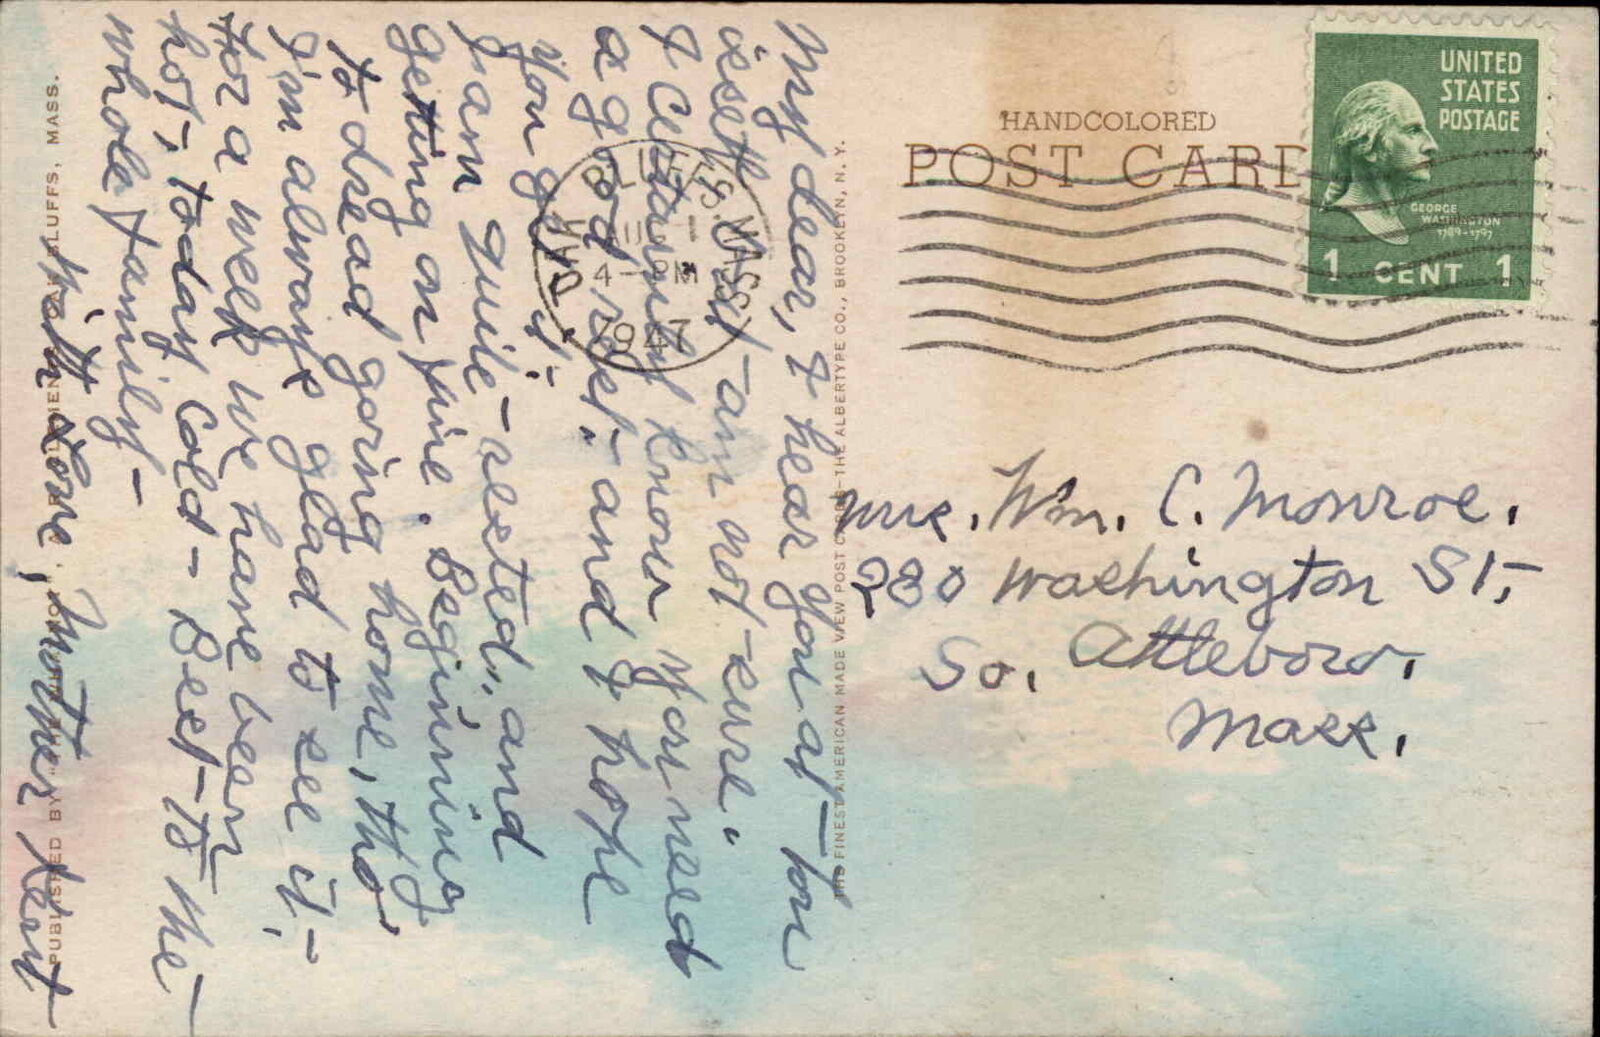 My dear, I hear you at-ton
isett Vst-am not-sure.
I Certainly know you need
a good rest- and I hope
you get it-
I am quite-rested, and
getting on fine. Beginning
to dread going home, tho'
I'm always glad to see it,-
For a week we have been
hot-, today Cold- Best-to the-
whole family-
With Love, Mother Kent
PUBLISHED BY BLUFFS, MASS.
THE FINEST AMERICAN MADE VIEW POST CARDS-THE ALBERTYPE CO., BROOKLYN, N. Y.
OAK BLUFFS. MASS.
4-PM
1947
HANDCOLORED
POST CARD
UNITED
STATES
POSTAGE
GEORGE
WASHINGTON
1789-1797
1 CENT 1
Mrs. Wm. C. Monroe.
280 Washington St,
So. Attleboro,
Mass.